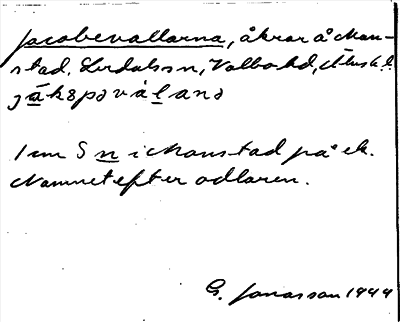 Jacobevallarna, åkrar å Mon-
stad. Lerdals sn, Valbo hd, Älvsb. l.
jákspəvàlanə
1 km S n i Monstad på ek.
Namnet efter odlaren.
G. Jonasson 1944